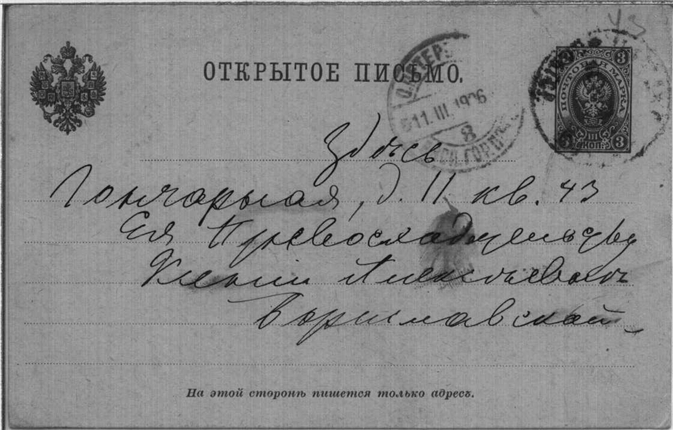 43
ОТКРЫТОЕ ПИСЬМО.
11.III.1906
8
3 3
ПОЧТОВАЯ МАРКА
3 III 3
КОП.
Здѣсь
Гончарная, д. 11 кв. 43
Ея Превосходительству
Алексѣевнѣ
Бориславской
На этой сторонѣ пишется только адресъ.